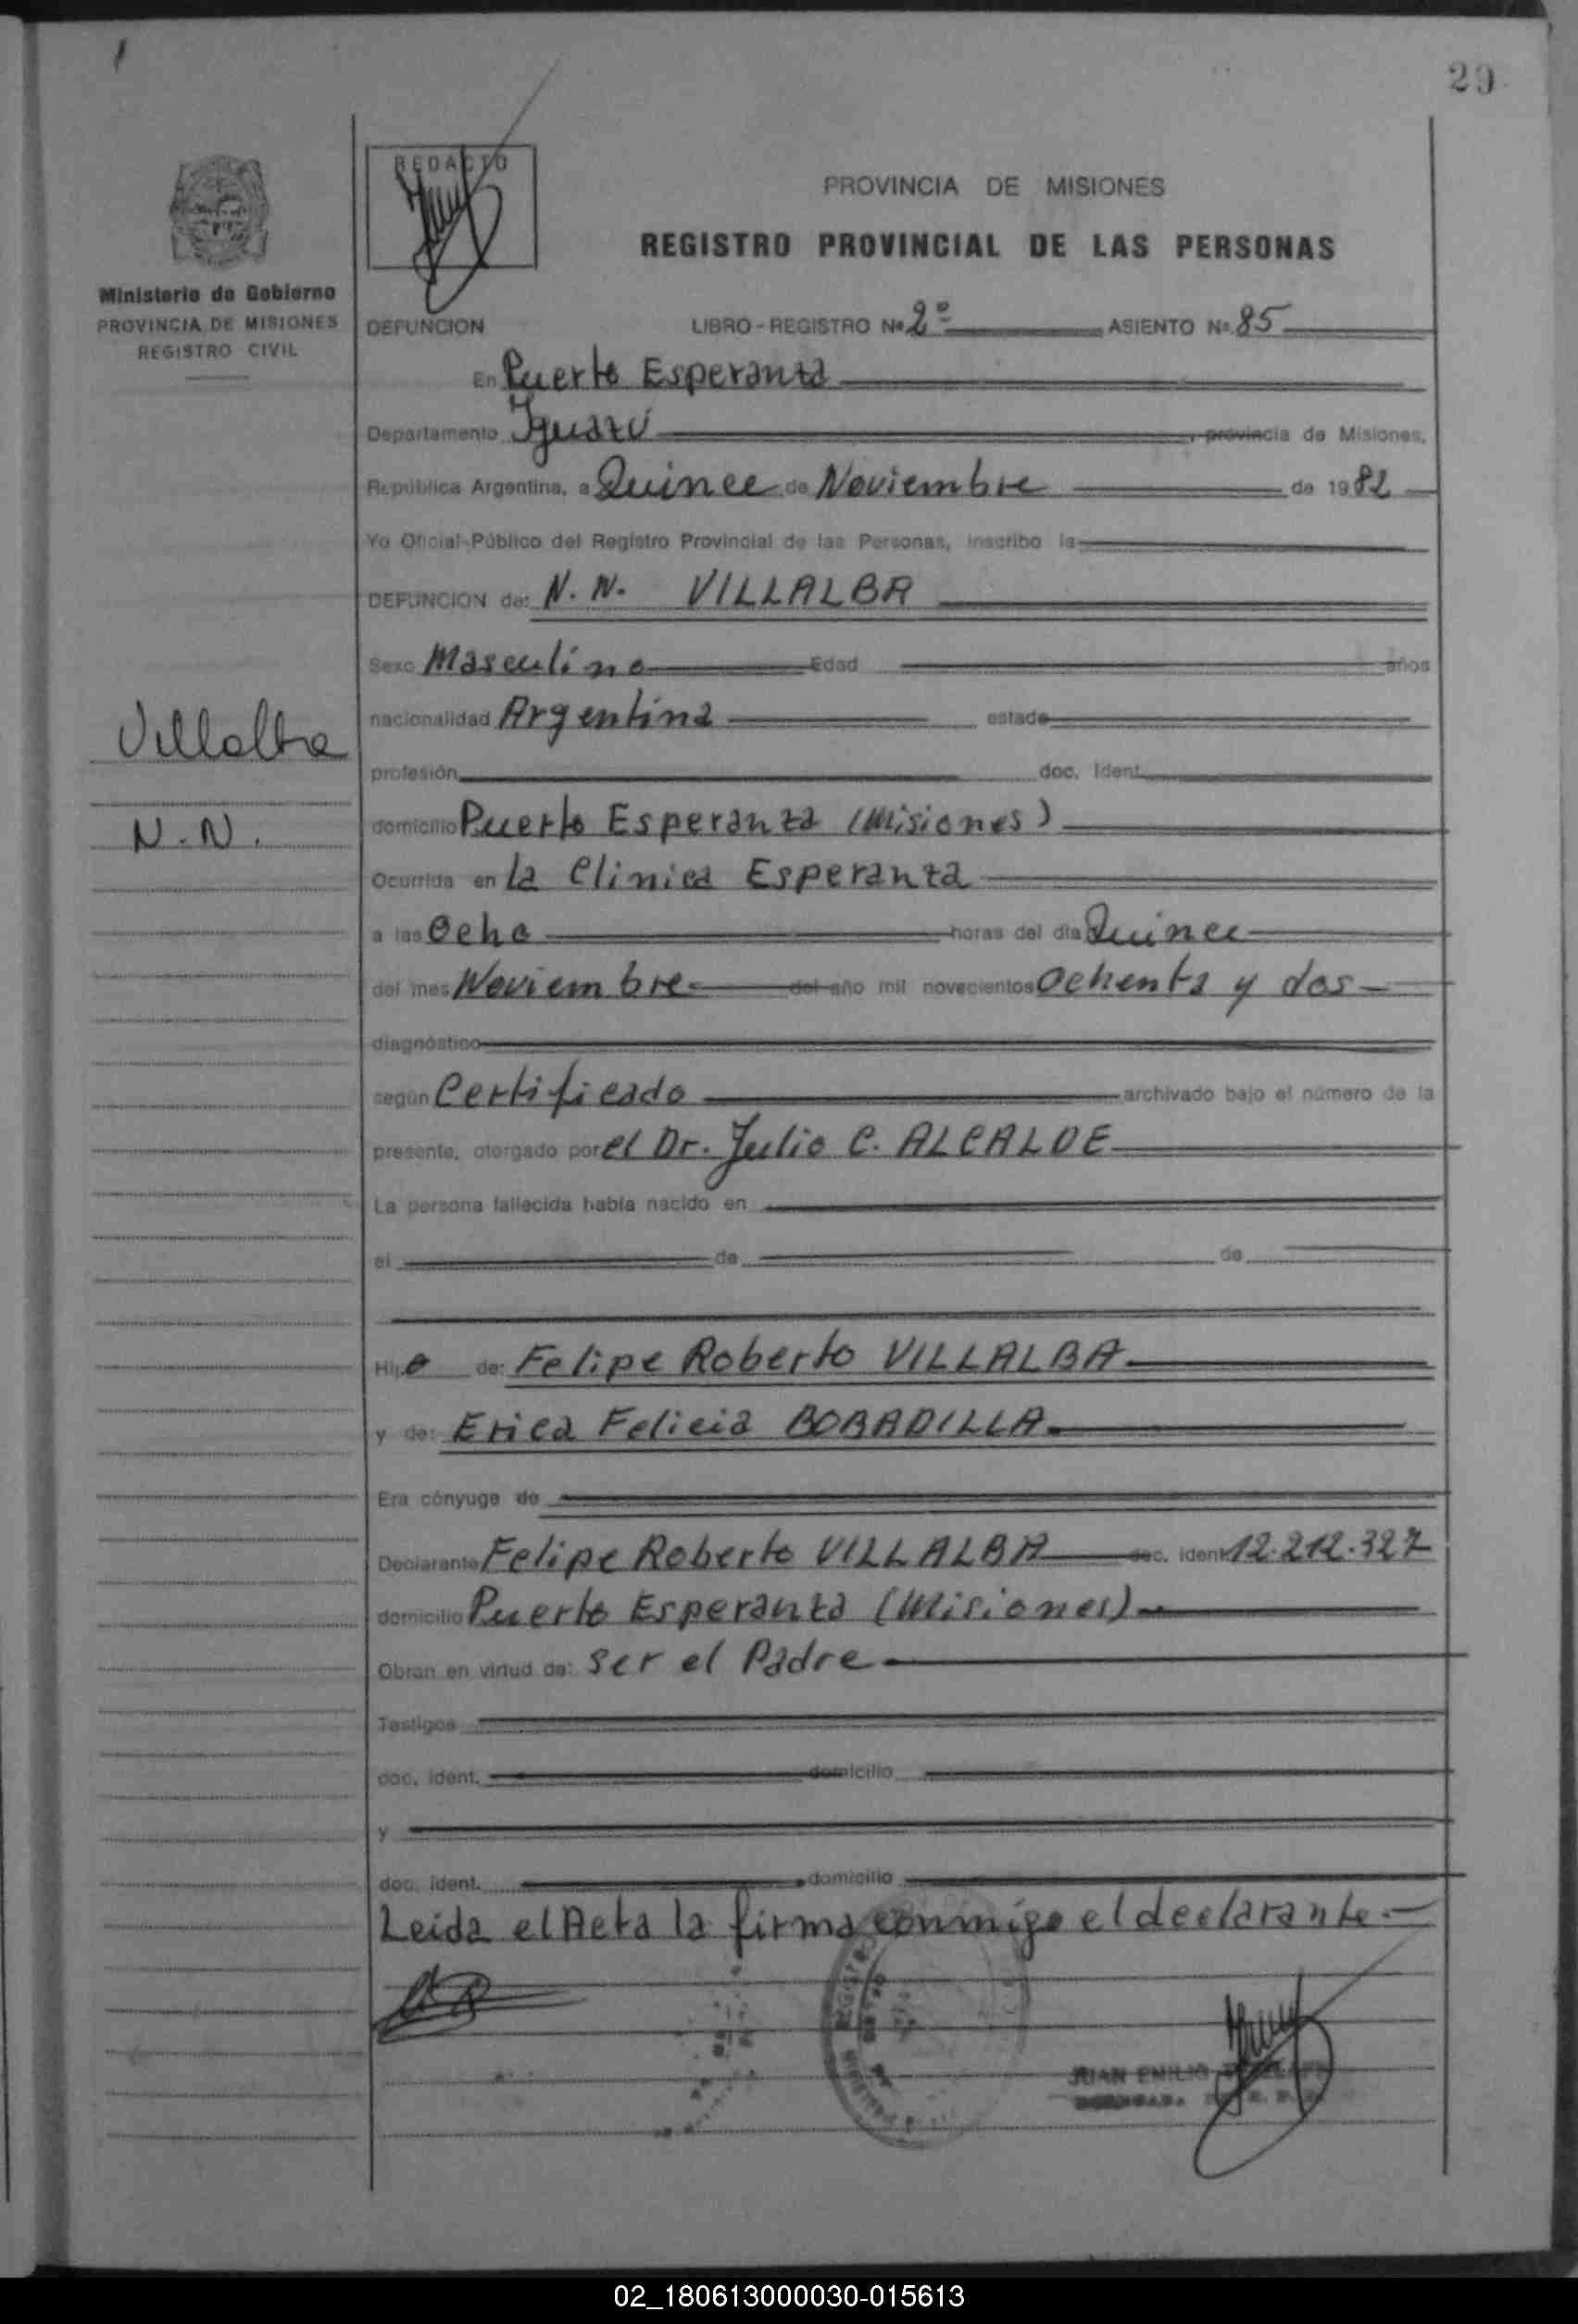 29
REDACTO
PROVINCIA DE MISIONES
REGISTRO PROVINCIAL DE LAS PERSONAS
Ministerio de Gobierno
PROVINCIA DE MISIONES
REGISTRO CIVIL
DEFUNCION LIBRO - REGISTRO Nº 2º ASIENTO Nº 85
En Puerto Esperanza
Departamento Iguazú, provincia de Misiones,
República Argentina, a Quince de Noviembre de 1982
Yo Oficial Público del Registro Provincial de las Personas, inscribo la
DEFUNCION de: N. N. VILLALBA
Sexo Masculino Edad años
nacionalidad Argentina estado
Villalba
profesión doc. Ident.
N. N.
domicilio Puerto Esperanza (Misiones)
Ocurrida en la Clinica Esperanza
a las Ocho horas del día Quince
del mes Noviembre del año mil novecientos Ochenta y dos
diagnóstico
según Certificado archivado bajo el número de la
presente, otorgado por el Dr. Julio C. ALCALDE
La persona fallecida había nacido en
el de de
Hijo de: Felipe Roberto VILLALBA
y de: Erica Felicia BOBADILLA
Era cónyuge de
Declarante Felipe Roberto VILLALBA doc. ident. 12.212.327
domicilio Puerto Esperanza (Misiones)
Obran en virtud de: ser el Padre
Testigos
doc. ident. domicilio
y
doc. ident. domicilio
Leida el Acta la firma conmigo el declarante.-
JUAN EMILIO
02_180613000030-015613